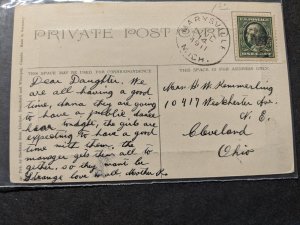 PRIVATE POST CARD
MARYSVILLE
DEC
1911
MICH.
THIS SPACE MAY BE USED FOR CORRESPONDENCE
THIS SPACE IS FOR ADDRESS ONLY.
Dear Daughter. We
are all having a good
time,
they are going
to have a public dance
tonight, the girls are
expecting to have a good
time with them, the
manager gets them all to
gether, so they must be
love to all Mother K.
Mrs H. W. Kemmerling
10417 Westchester Ave.
N. E.
Cleveland
Ohio